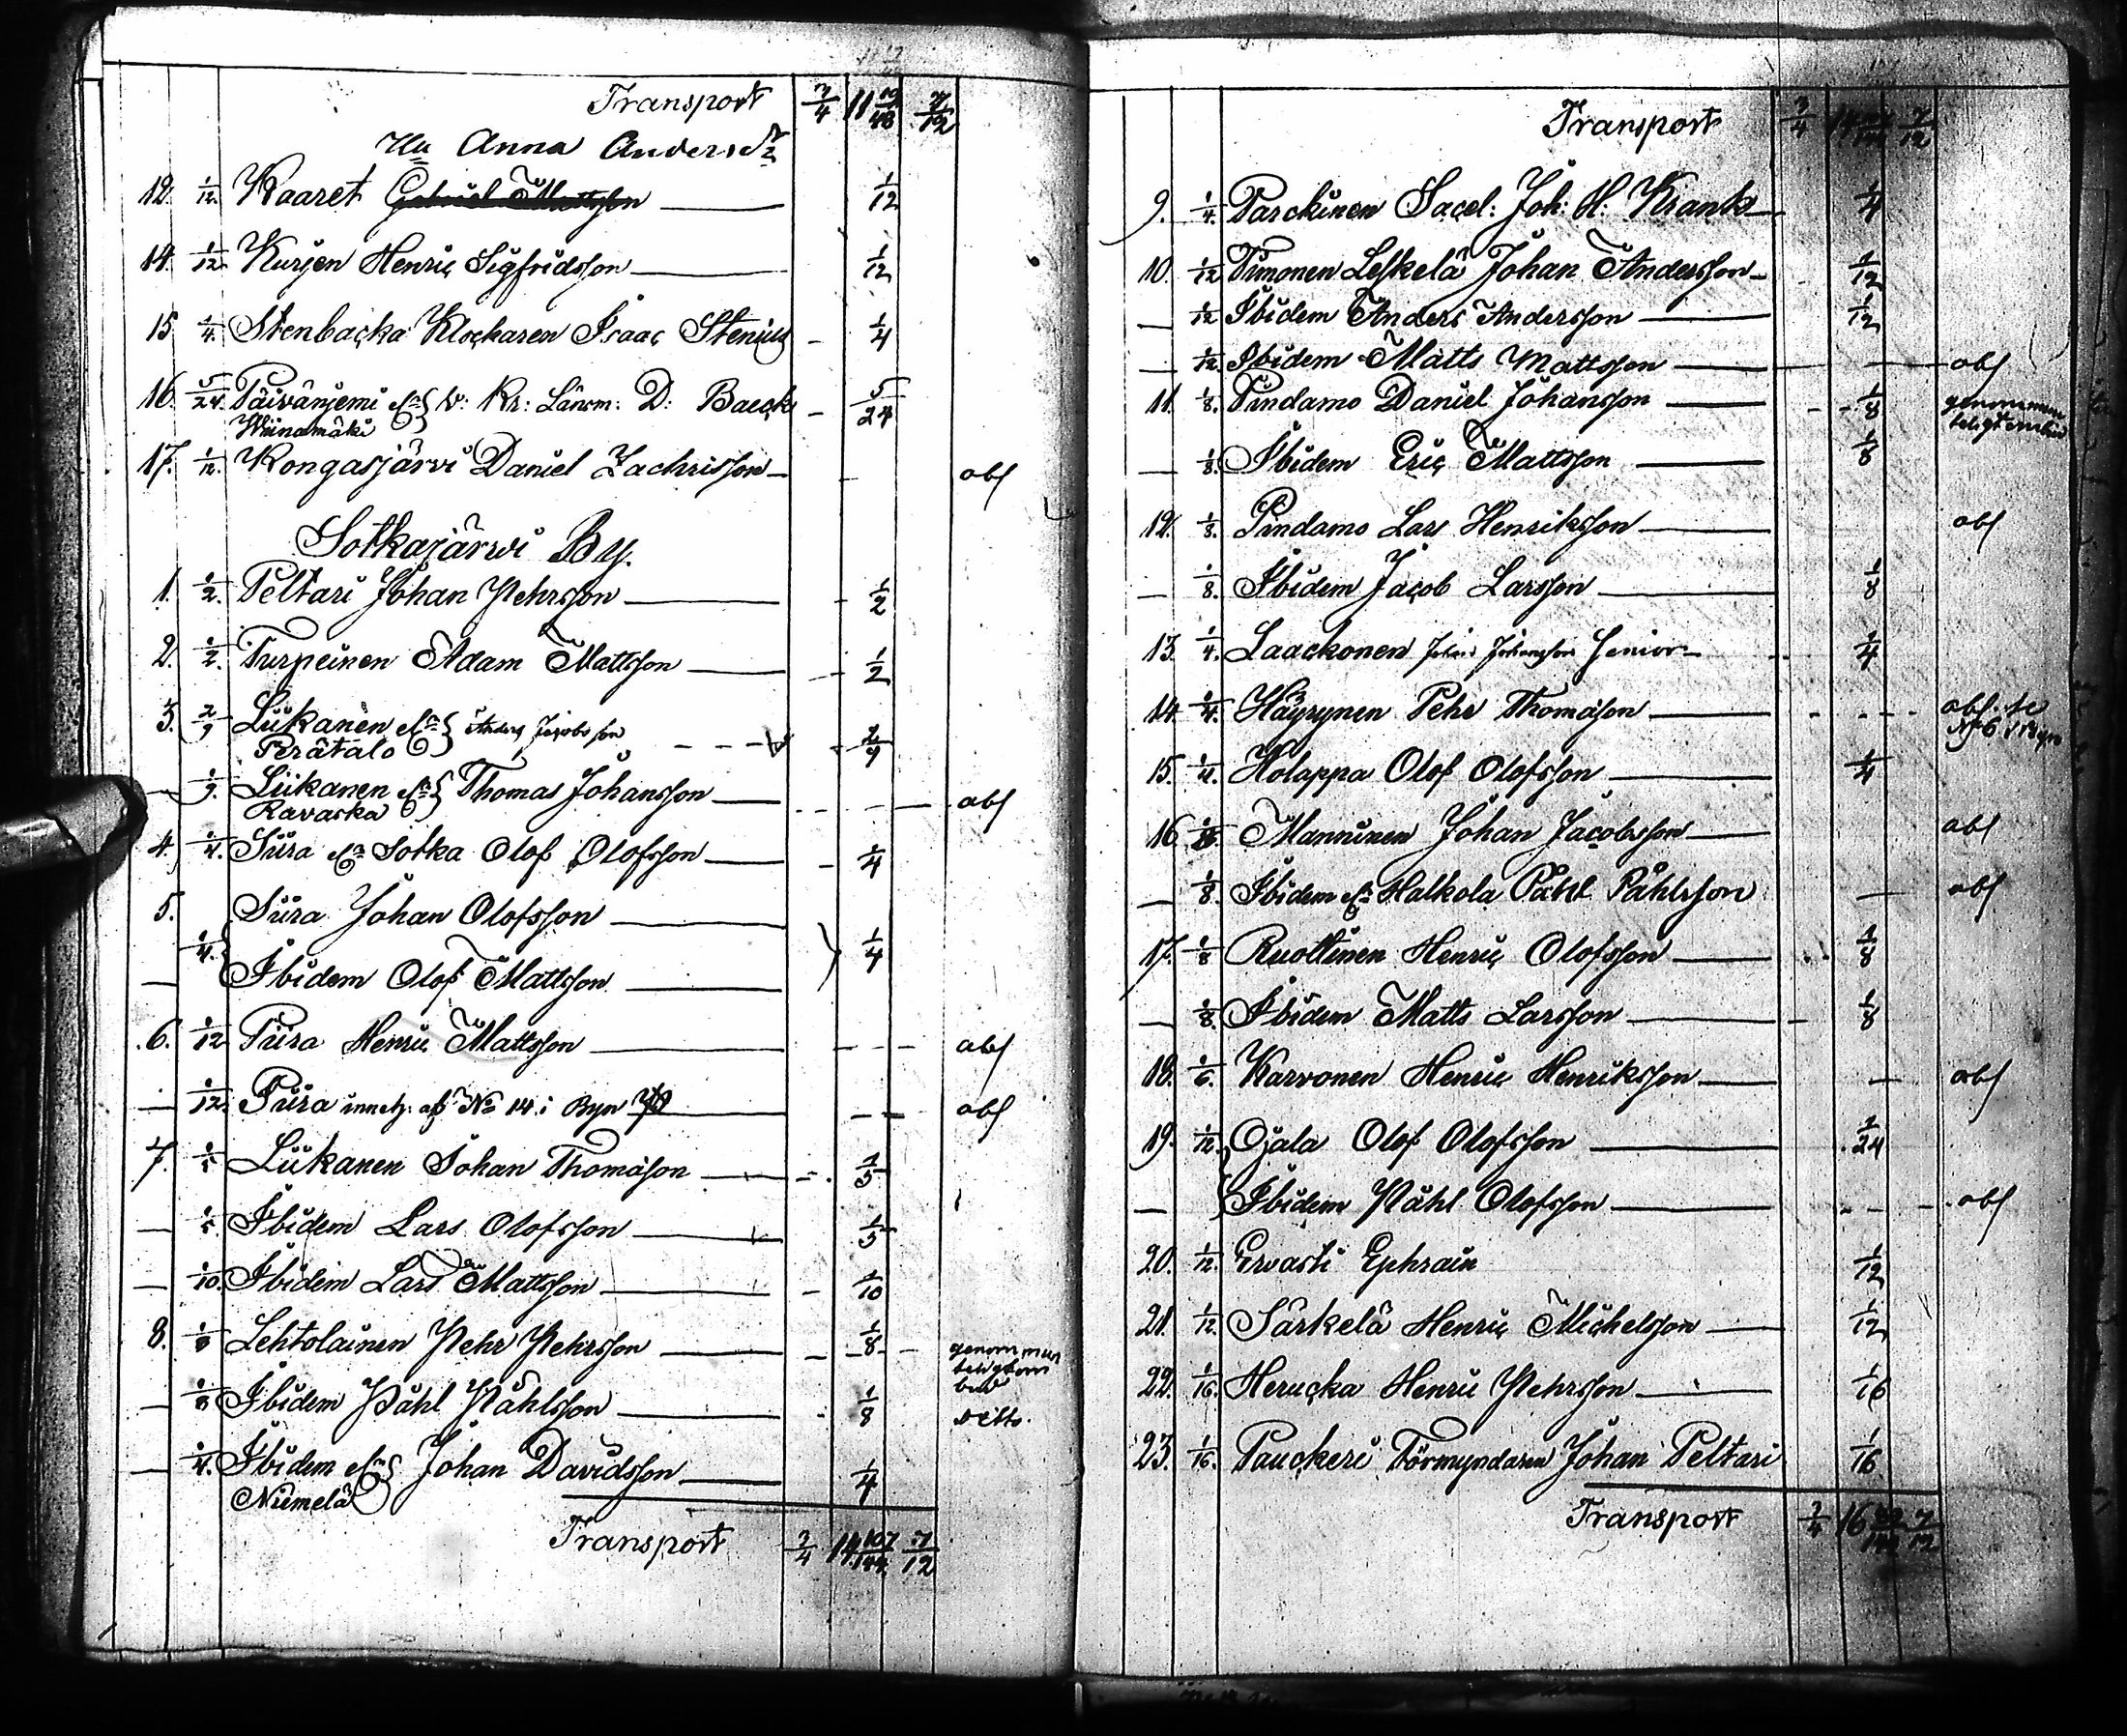 Transport 3/4 11 19/48 7/12
Anna Andersd:r
12. 1/12 Kaaret Gabriel Mattsson 1/12
14. 1/12 Kurjen Henric Sigfridsson 1/12
15 1/4 Stenbacka Klockaren Isaac Stenius 1/4
16. 5/24 Päivänjemi v: Kr: Länsm: D: Baeck 5/24
Wiinamäki
17. 1/12 Kongasjärvi Daniel Zachrisson abs
Sotkajärwi By.
1. 1/2 Peltari Johan Pehrsson 1/2
2. 1/2 Turpeinen Adam Mattsson 1/2
3. 2/9 Liikanen Anders Jacobsson 2/9
Perätalo
— 1/9 Liikanen Thomas Johansson abs
Ravaska
4. 1/4 Siira Sotka Olof Olofsson 1/4
5. Siira Johan Olofsson
1/4 1/4
— Ibidem Olof Mattsson
6. 1/12 Piira Henric Mattsson abs
— 1/12 Piira af No 14 i Byn abs
7. 1/5 Liikanen Johan Thomasson 1/5
— 1/5 Ibidem Lars Olofsson 1/5
— 1/10 Ibidem Lars Mattsson 1/10
8. 1/8 Lehtolainen Pehr Pehrsson 1/8 genom
bud
— 1/8 Ibidem Påhl Påhlsson 1/8 ditto.
— 1/4 Ibidem Johan Davidsson 1/4
Niemelä
Transport 3/4 14 107/144 7/12
Transport 3/4 14 7/12
9. 1/4 Parckinen Sacel: Joh: H: Krank 1/4
10. 1/12 Timonen Leskelä Johan Andersson 1/12
— 1/12 Ibidem Anders Andersson 1/12
— 1/12 Ibidem Matts Mattsson abs
11. 1/8 Pindamo Daniel Johansson 1/8 genom
— 1/8 Ibidem Eric Mattsson 1/8
12. 1/8 Pindamo Lars Henriksson abs
— 1/8 Ibidem Jacob Larsson 1/8
13. 1/4 Laackonen Johan Johansson Senior 1/4
14 1/4 Häyrynen Pehr Thomasson abs. se
No 6 i Byn
15. 1/4 Holappa Olof Olofsson 1/4
16 Manninen Johan Jacobsson abs
— 1/8 Ibidem Halkola Påhl Påhlsson abs
17. 1/8 Ruottinen Henric Olofsson 1/8
— 1/8 Ibidem Matts Larsson 1/8
18. 1/6 Karvonen Henric Henriksson abs
19. 1/12 Ojala Olof Olofsson 1/24
— Ibidem Påhl Olofsson abs
20. 1/12 Ervasti Ephraim 1/12
21. 1/12 Särkelä Henric Michelsson 1/12
22. 1/16 Herucka Henric Pehrsson 1/16
23. 1/16 Pauckeri Förmyndaren Johan Peltari 1/16
Transport 3/4 16 7/12